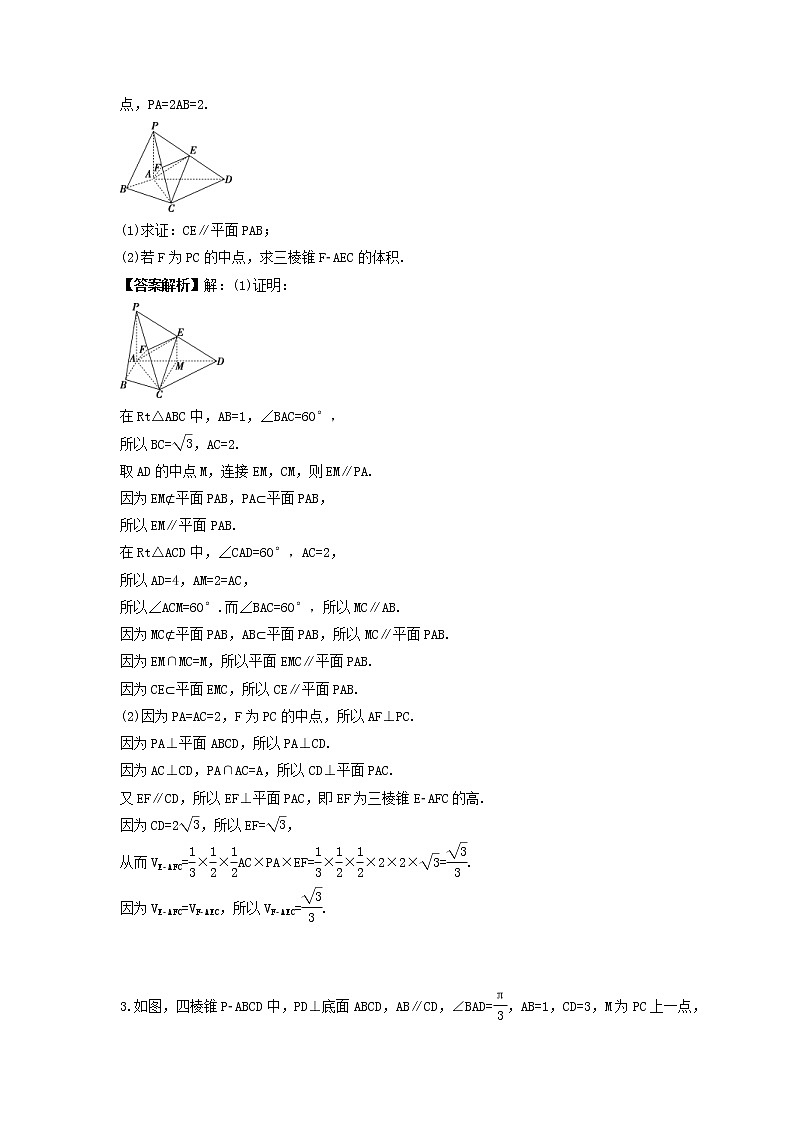 点,PA=2AB=2.
P
E
F
A
D
B
C
(1)求证:CE∥平面PAB;
(2)若F为PC的中点,求三棱锥F-AEC的体积.
【答案解析】解:(1)证明:
P
E
F
A
M
D
B
C
在Rt△ABC中,AB=1,∠BAC=60°,
所以BC=√3,AC=2.
取AD的中点M,连接EM,CM,则EM∥PA.
因为EM⊄平面PAB,PA⊂平面PAB,
所以EM∥平面PAB.
在Rt△ACD中,∠CAD=60°,AC=2,
所以AD=4,AM=2=AC,
所以∠ACM=60°.而∠BAC=60°,所以MC∥AB.
因为MC⊄平面PAB,AB⊂平面PAB,所以MC∥平面PAB.
因为EM∩MC=M,所以平面EMC∥平面PAB.
因为CE⊂平面EMC,所以CE∥平面PAB.
(2)因为PA=AC=2,F为PC的中点,所以AF⊥PC.
因为PA⊥平面ABCD,所以PA⊥CD.
因为AC⊥CD,PA∩AC=A,所以CD⊥平面PAC.
又EF∥CD,所以EF⊥平面PAC,即EF为三棱锥E-AFC的高.
因为CD=2√3,所以EF=√3,
从而V_{E-AFC}=1/3×1/2×1/2AC×PA×EF=1/3×1/2×1/2×2×2×√3=√3/3.
因为V_{E-AFC}=V_{F-AEC},所以V_{F-AEC}=√3/3.
3.如图,四棱锥P-ABCD中,PD⊥底面ABCD,AB∥CD,∠BAD=π/3,AB=1,CD=3,M为PC上一点,